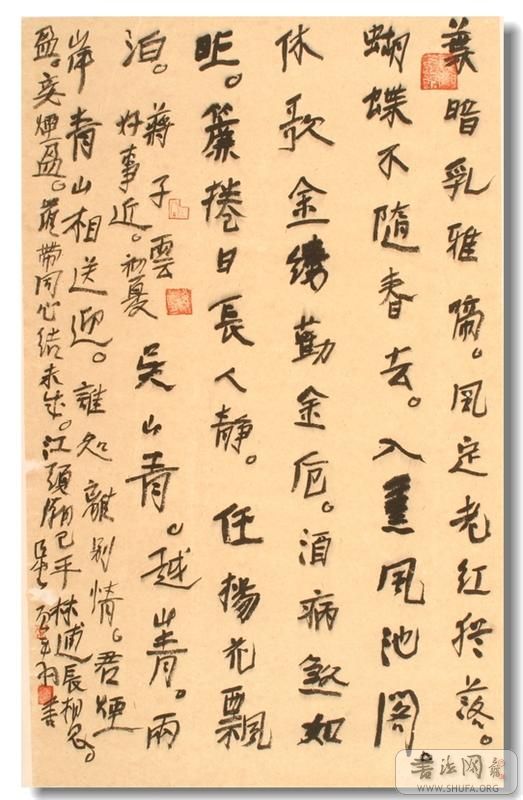 葉暗乳雅啼。风定老红猶落。
蝴蝶不隨春去。入熏风池閣
休歌金縷勸金卮。酒病煞如
昨。簾捲日長人靜。任楊花飄
泊。蔣子雲
好事近。初夏
吴山青。越山青。兩
岸青山相送迎。誰知離别情。君
盈。妾盈。羅帶同心結未成。江頭潮已平 林逋長相思。
書
書法网
WWW.SHUFA.ORG